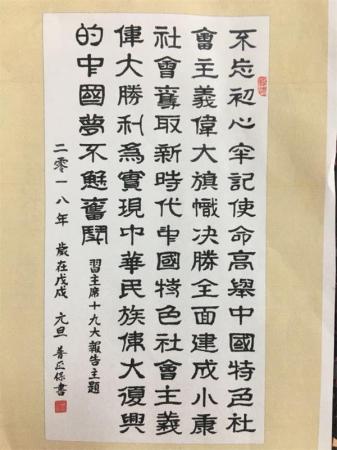 不忘初心牢記使命高舉中國特色社
會主義偉大旗幟決勝全面建成小康
社會奪取新時代中國特色社會主義
偉大勝利為實現中華民族偉大復興
的中國夢不懈奮鬥
習主席十九大報告主題
二零一八年 歲在戊戌 元旦 正保書